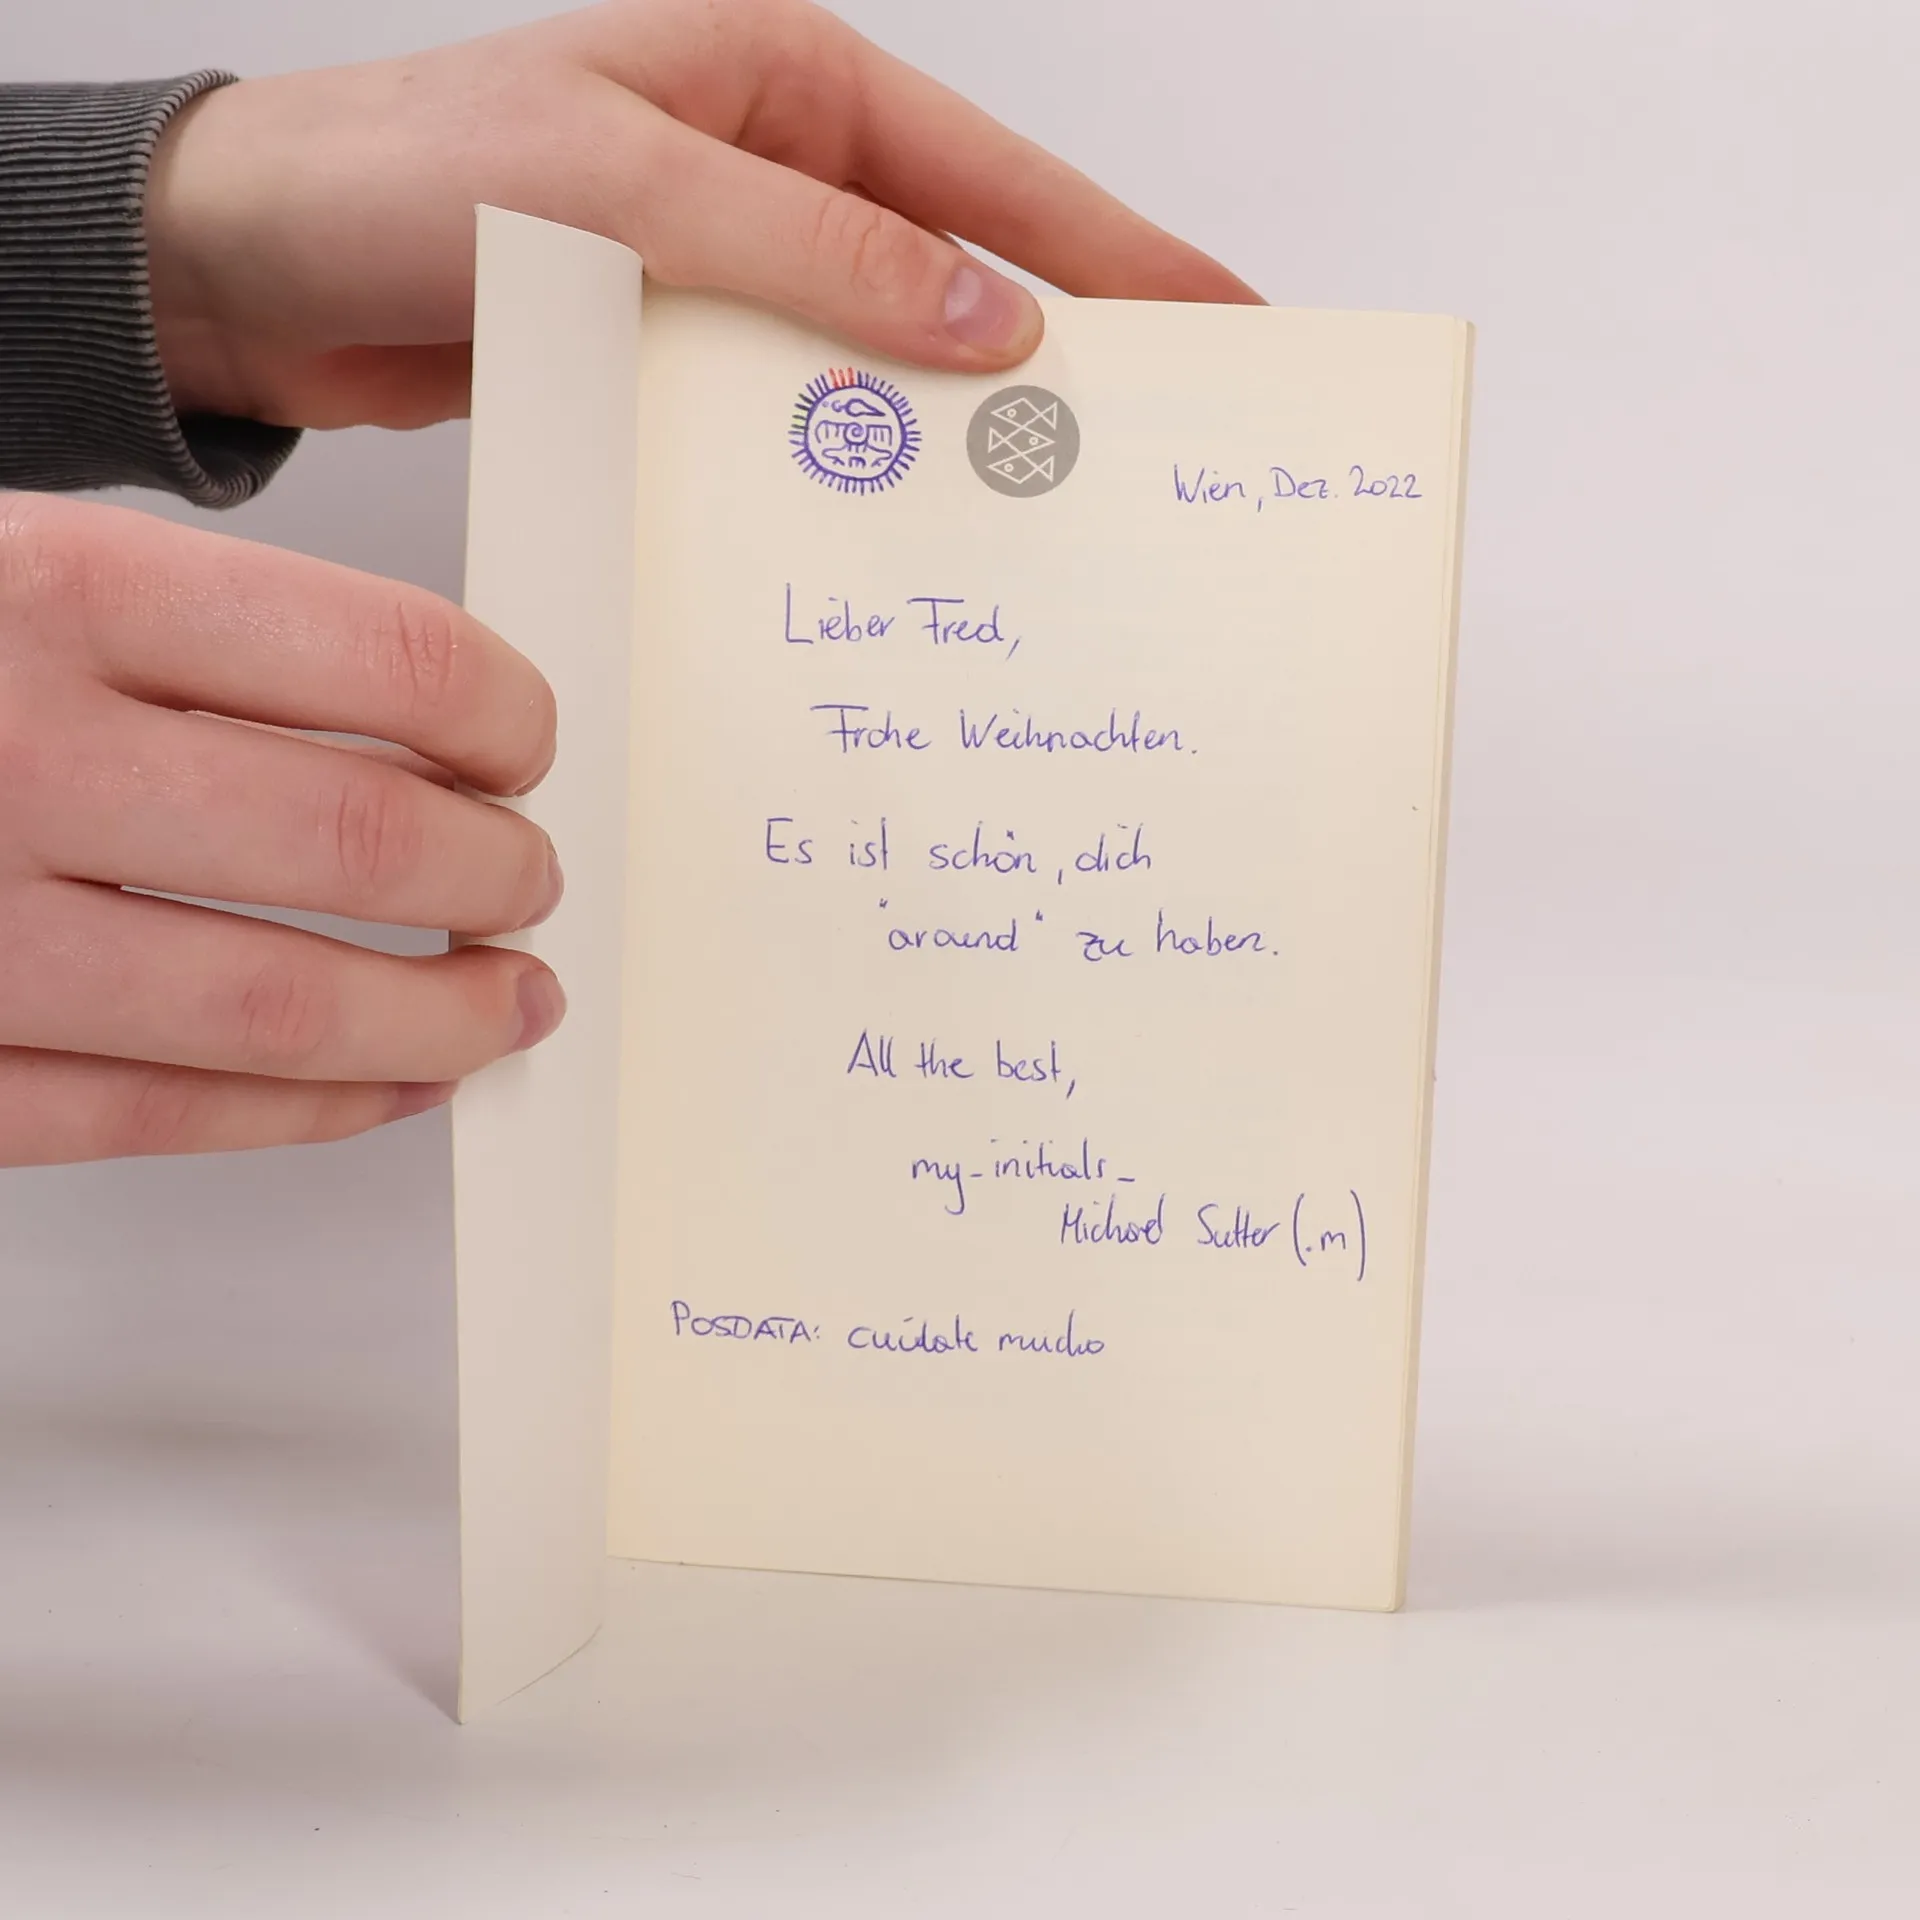 Wien, Dez. 2022
Lieber Fred,
Frohe Weihnachten.
Es ist schön, dich
"around" zu haben.
All the best,
my-initials-
Michael Sutter (.m)
POSDATA: cuídate mucho